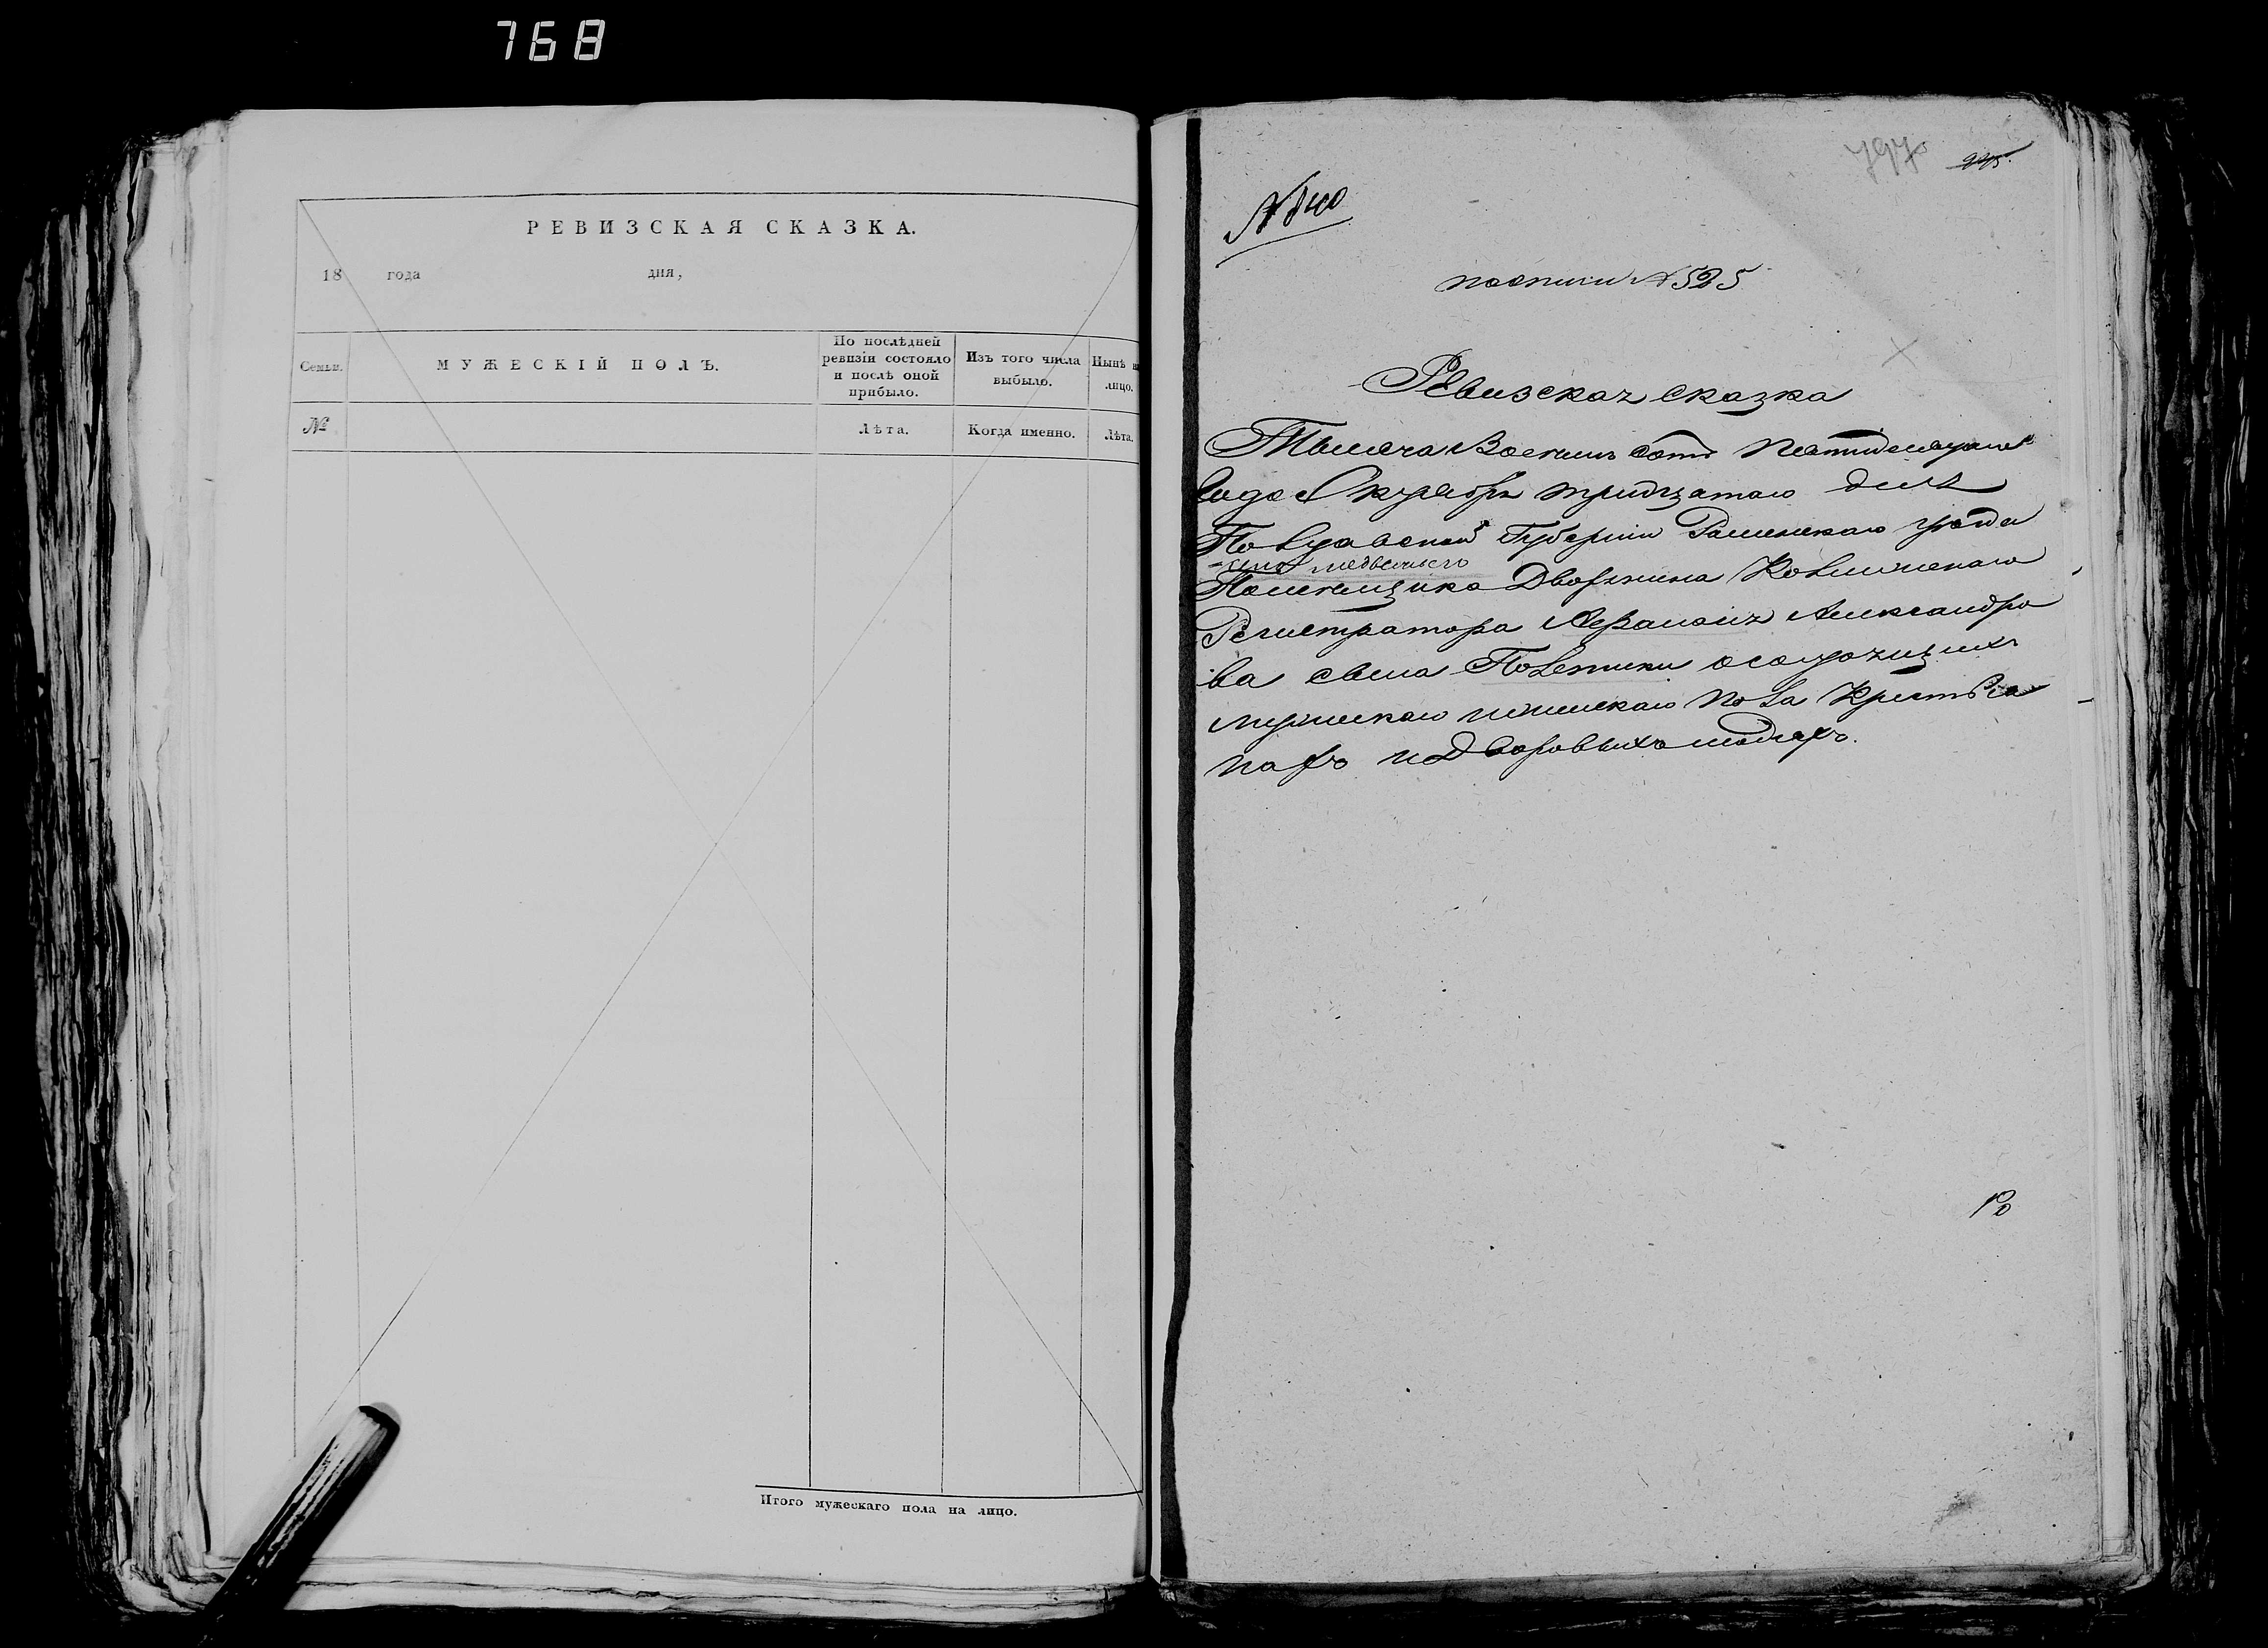 768
РЕВИЗСКАЯ СКАЗКА.
18 года дня,
Семьи.
МУЖЕСКІЙ ПОЛЪ.
По послѣдней
ревизіи состояло
и послѣ оной
прибыло.
Изъ того числа
выбыло.
Нынѣ н
лицо.
№
Лѣта.
Когда именно.
Лѣта.
Итого мужескаго пола на лицо.
797
№ 525
Ревизская сказка
Тысяча Восемь сотъ Пятидесятаго
Года Октября тридцатого дня
Полтавской Губерніи Роменскаго уезда
Помещика Дворянина Колежскаго
Регистратора Афанасия Александро
ва сына Полетики о состоящихъ
мужескаго и женскаго пола Крестья
нахъ и Дворовыхъ людяхъ.